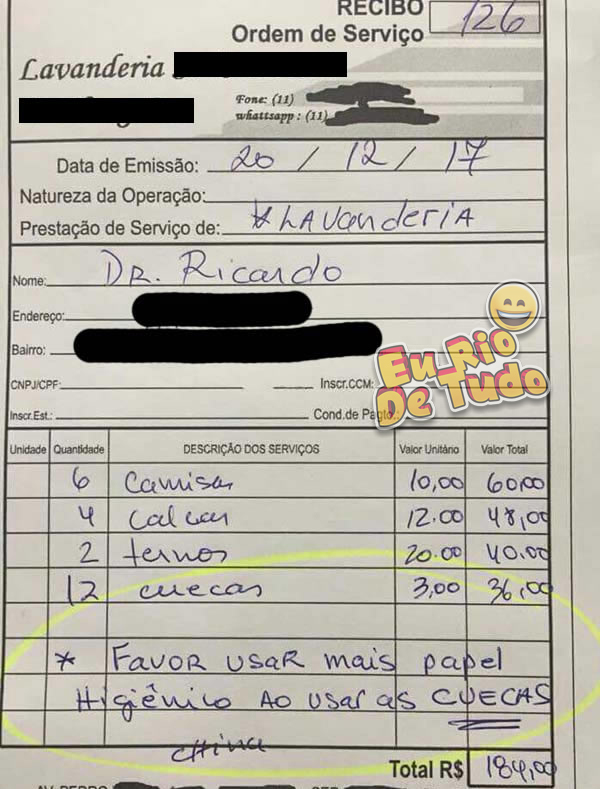 RECIBO 126
Ordem de Serviço
Lavanderia
Fone: (11)
whattsapp : (11)
Data de Emissão: 20 / 12 / 17
Natureza da Operação:
Prestação de Serviço de: * LAVANDERIA
Nome: DR. Ricardo
Endereço:
Bairro:
Eu Rio
De Tudo
CNPJ/CPF: Inscr.CCM:
Inscr.Est.: Cond.de Pagto.:
Unidade Quantidade DESCRIÇÃO DOS SERVIÇOS Valor Unitário Valor Total
6 camisas 10,00 60,00
4 calcas 12.00 48,00
2 ternos 20.00 40.00
12 cuecas 3,00 36,00
* FAVOR USAR mais papel
Higiênico AO USAR AS CUECAS
Total R$ 184,00